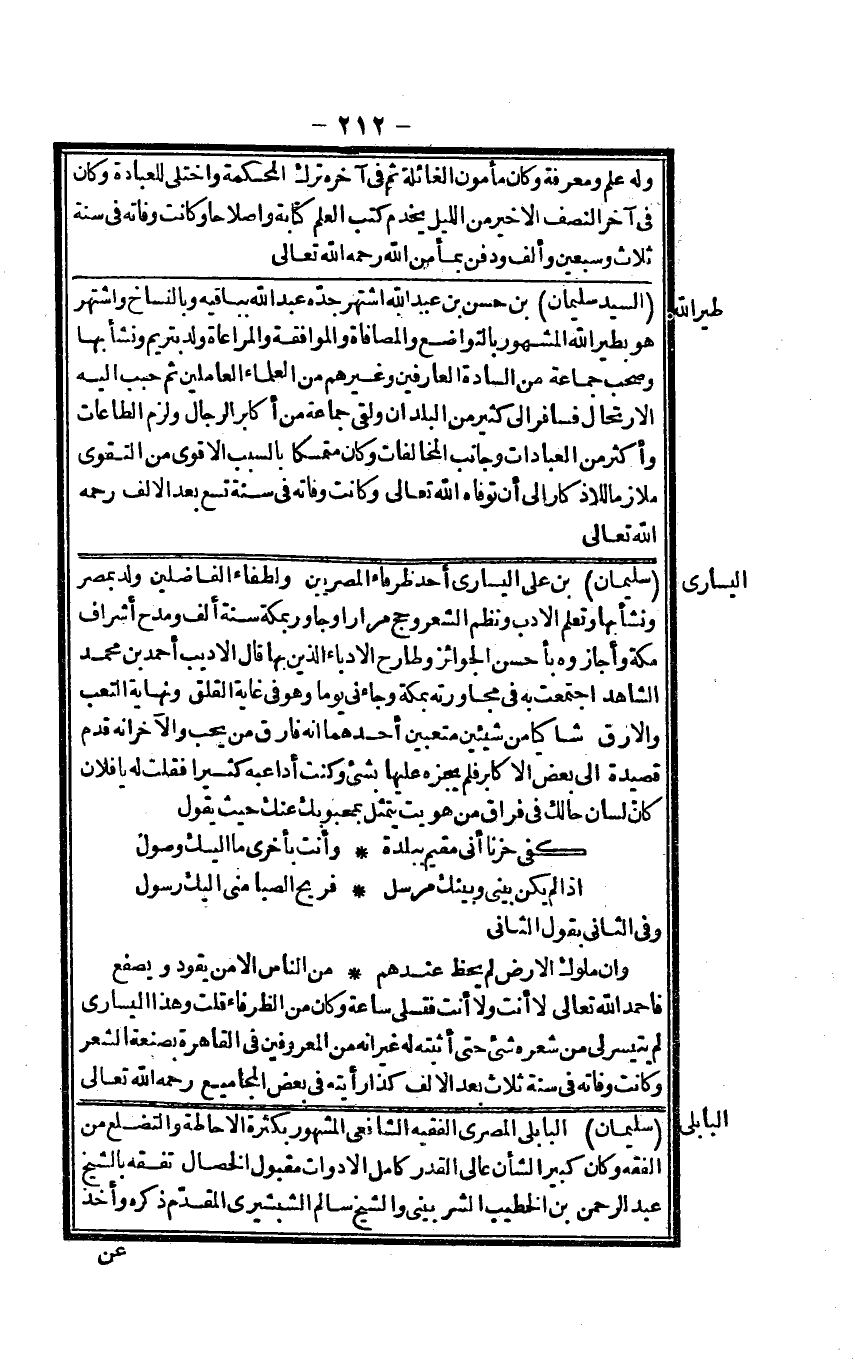 - ٢١٢ -
وله علم ومعرفة وكان مأمون الغائلة ثم فى آخره ترك المحكمة واختلى للعبادة وكان
فى آخر النصف الاخير من الليل يخدم كتب العلم كتابة واصلاحا وكانت وفاته فى سنة
ثلاث وسبعين وألف ودفن بمأمن الله رحمه الله تعالى
طير الله
(السيد سليمان) بن حسن بن عبد الله اشتهر جدّه عبد الله بباقيه وبالنساخ واشتهر
هو بطير الله المشهور بالتواضع والمصافاة والموافقة والمراعاة ولد بتريم ونشأ بها
وصحب جماعة من السادة العارفين وغيرهم من العلماء العاملين ثم حبب اليه
الارتحال فسافر الى كثير من البلدان ولقى جماعة من أكابر الرجال ولزم الطاعات
وأكثر من العبادات وجانب المخالفات وكان متمسكا بالسبب الاقوى من التقوى
ملازما للاذكار الى أن توفاه الله تعالى وكانت وفاته فى سنة تسع بعد الالف رحمه
الله تعالى
اليسارى
(سليمان) بن على اليسارى أحد ظرفاء المصريين ولطفاء الفاضلين ولد بمصر
ونشأ بها وتعلم الادب ونظم الشعر وحج مرارا وجاور بمكة سنة ألف ومدح أشراف
مكة وأجازوه بأحسن الجوائز وطارح الادباء الذين بها قال الاديب أحمد بن محمد
الشاهد اجتمعت به فى مجاورته بمكة وجاءنى يوما وهو فى غاية القلق ونهاية التعب
والارق شاكا من شيئين متعبين أحدهما انه فارق من يحب والآخر انه قدم
قصيدة الى بعض الاكابر فلم يجزه عليها بشئ وكنت أداعبه كثيرا فقلت له يا فلان
كان لسان حالك فى فراق من هويت يتمثل بمعبوبك عنك حيث يقول
كفى حزنا أنى مقيم ببلدة * وأنت بأخرى ما اليك وصول
اذا لم يكن بينى وبينك مرسل * فريح الصبا منى اليك رسول
وفى الثانى يقول الثانى
وان ملوك الارض لم يحظ عندهم * من الناس الا من يقود ويصفع
فاحمد الله تعالى لا أنت ولا أنت فقلى ساعة وكان من الظرفاء قلت وهذا اليسارى
لم يتيسر لى من شعره شئ حتى أثبته له غير انه من المعروفين فى القاهرة بصنعة الشعر
وكانت وفاته فى سنة ثلاث بعد الالف كذا رأيته فى بعض المجاميع رحمه الله تعالى
البابلى
(سليمان) البابلى المصرى الفقيه الشافعى المشهور بكثرة الاحاطة والتضلع من
الفقه وكان كبير الشأن عالى القدر كامل الادوات مقبول الخصال تفقه بالشيخ
عبد الرحمن بن الخطيب الشربينى والشيخ سالم الشبشيرى المقدّم ذكره وأخذ
عن